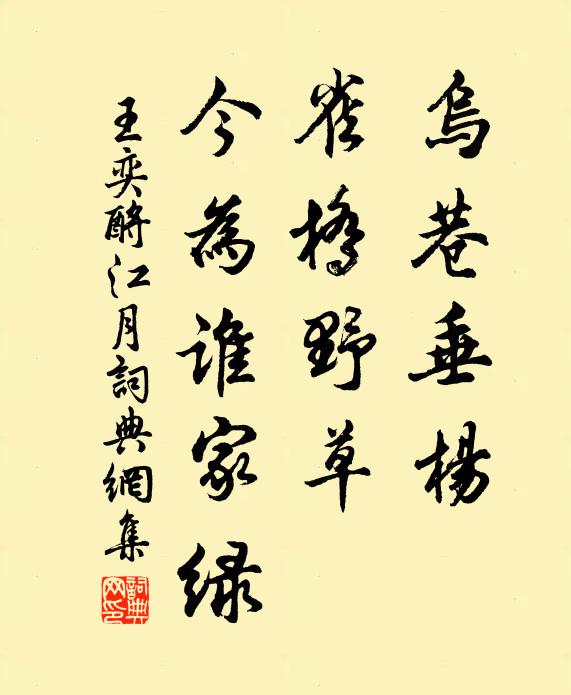 烏巷垂楊
雀橋野草
今為誰家綠
王奕酹江月詞典網集
詞典網印